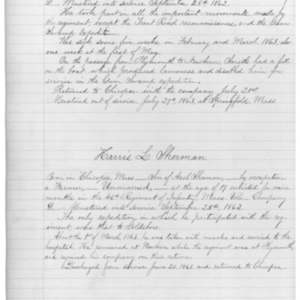 D. Mustered into service September 26th 1862.
He took part in all the important movements made by
the regiment except the Trent Road reconnoissance and the Gum
Swamp Expedition.
Was sick some few weeks in February and March 1863, also one
week at the first of May.
On the passage from Plymouth to Newbern, he had a fall on
the boat which produced lameness and disabled him for
service on the Gum Swamp expedition.
Returned to Chicopee with the company July 22nd
Mustered out of service July 29th 1863, at Springfield, Mass
Harris L. Sherman
Born in Chicopee, Mass. Son of Sherman, by occupation
a Farmer. Unmarried. at the age of 19 enlisted for nine
months in the 46th Regiment of Infantry, Mass. Vols. Company
D. Mustered into service September 26th 1862.
The only expedition in which he participated with the regi-
ment was that to Goldsboro.
About the 1st of March 1863, he was taken with measles and carried to the
hospital. He remained at Newbern while the regiment was at Plymouth,
and joined his company on their return.
Discharged from service June 20 1863 and returned to Chicopee.